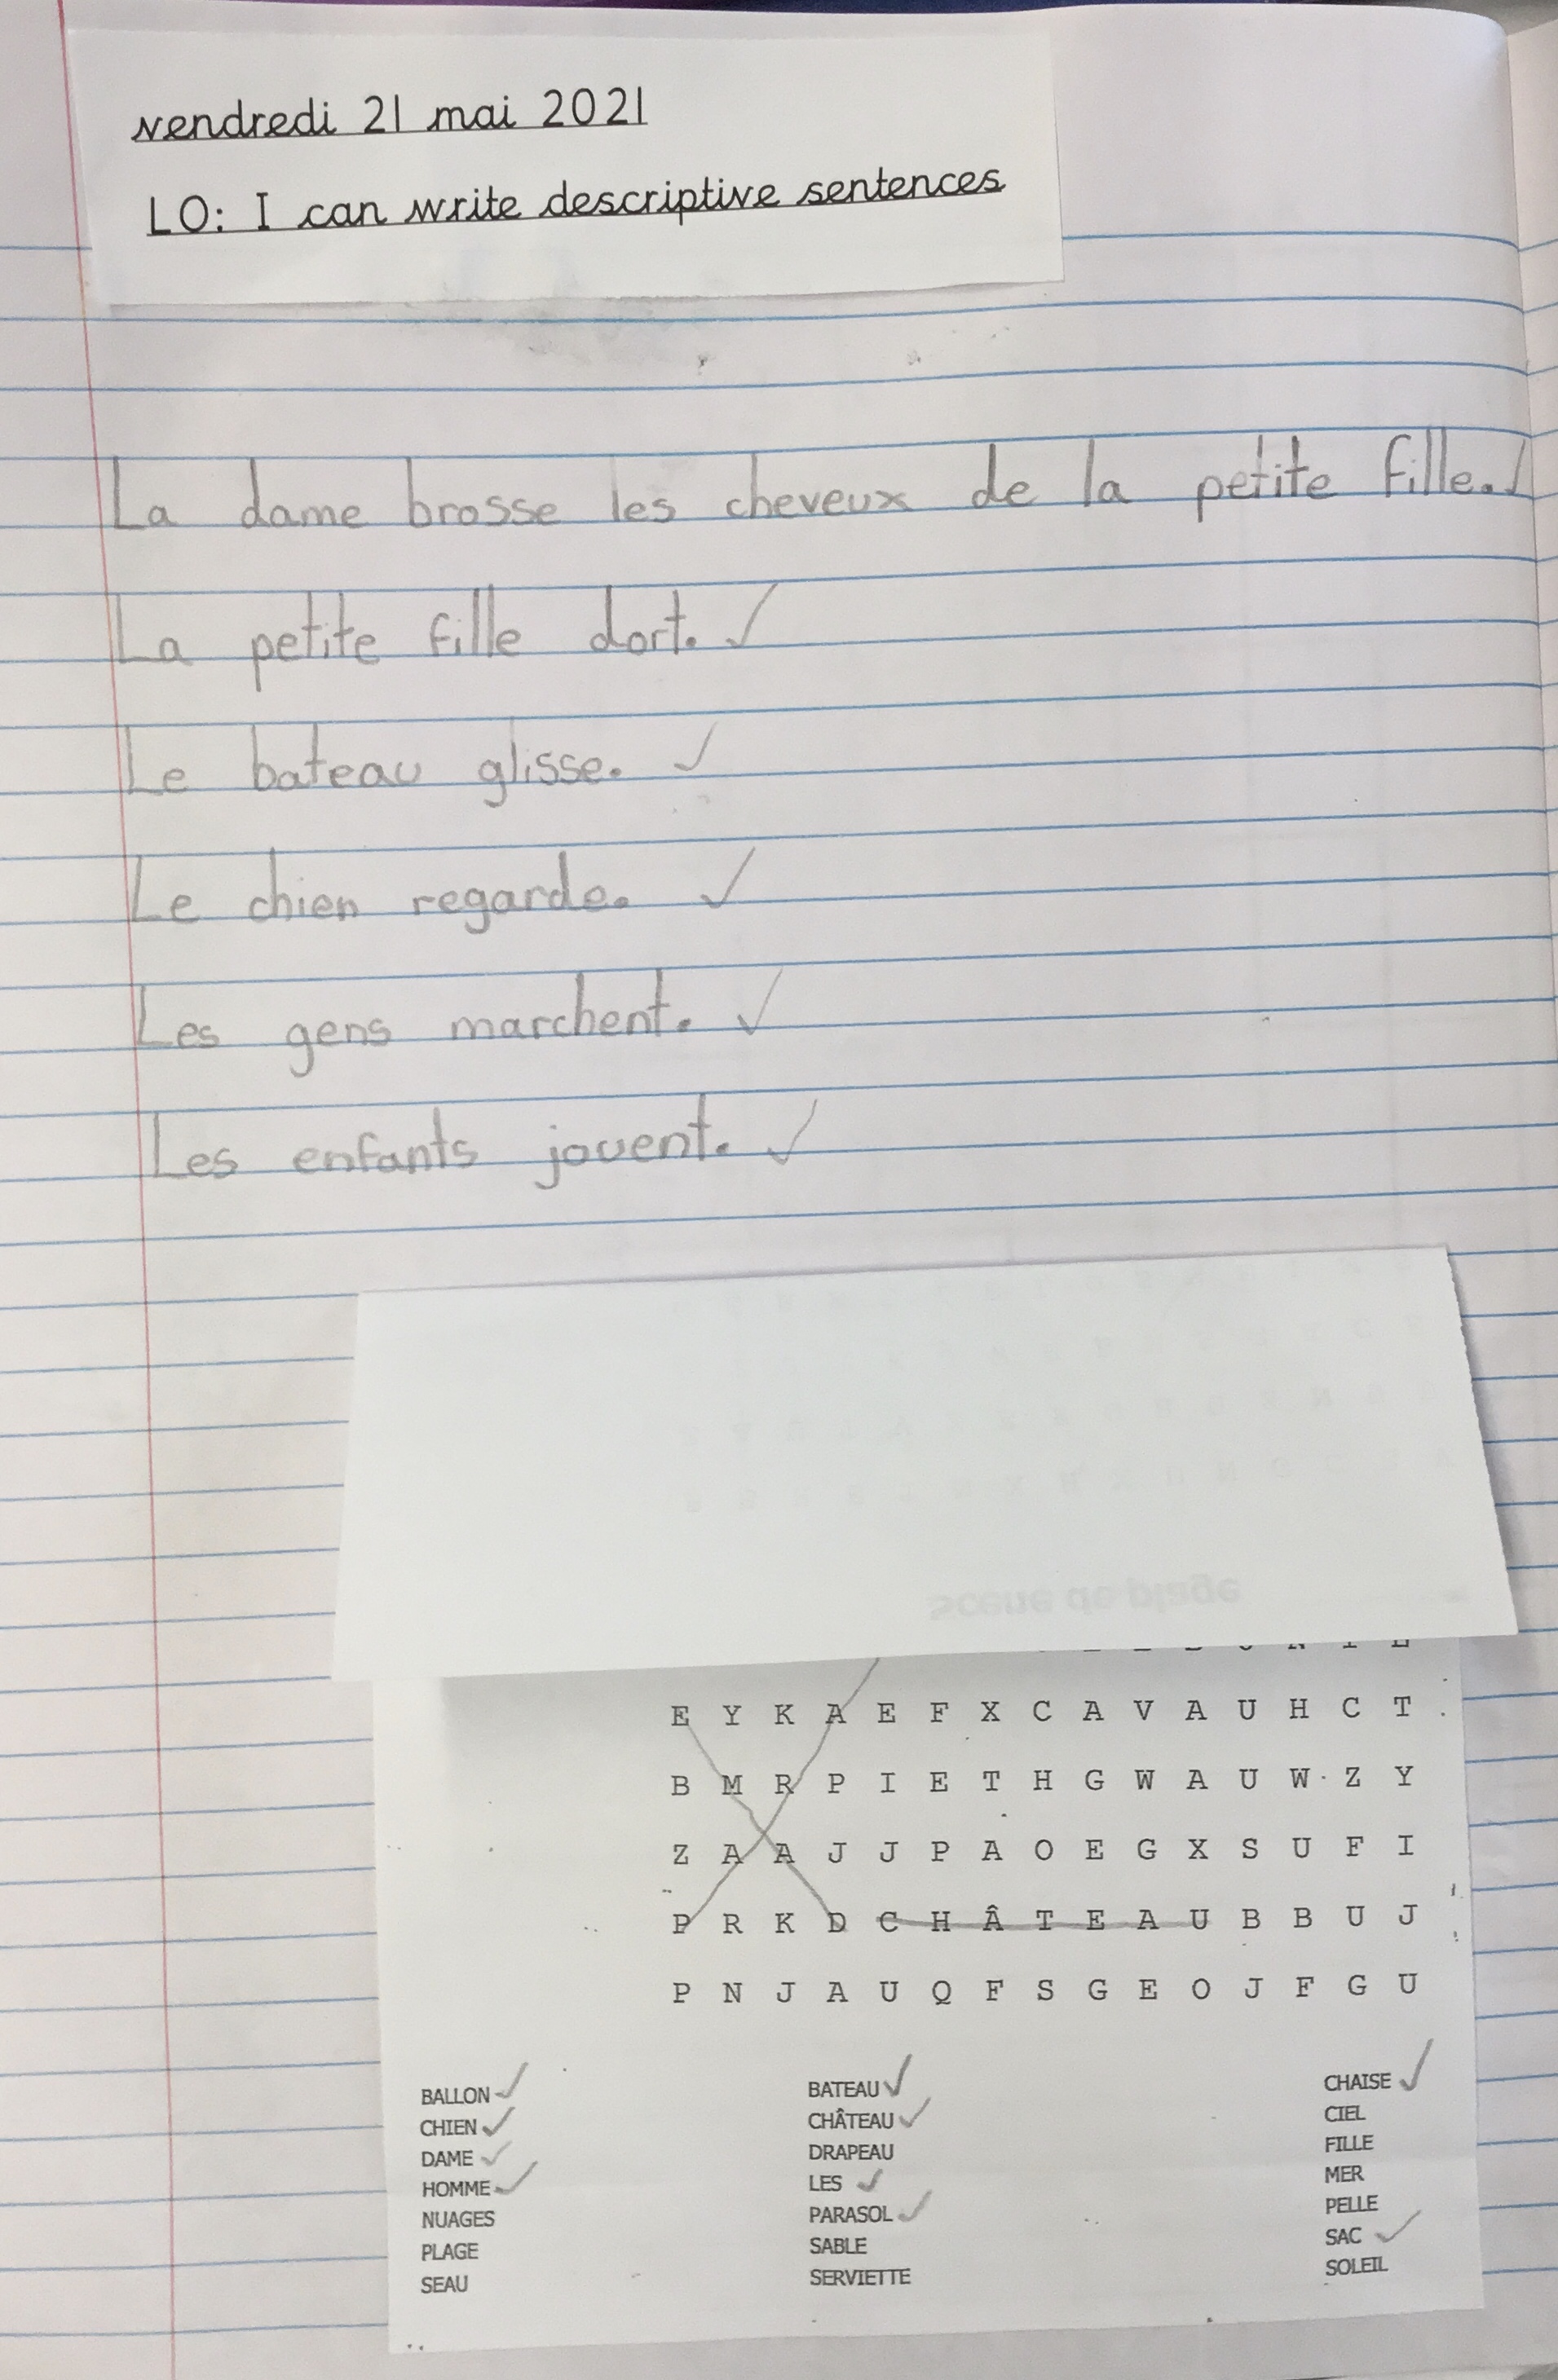 vendredi 21 mai 2021
LO: I can write descriptive sentences
La dame brosse les cheveux de la petite fille.
La petite fille dort.
Le bateau glisse.
Le chien regarde.
Les gens marchent.
Les enfants jouent.
E Y K A E F X C A V A U H C T
B M R P I E T H G W A U W Z Y
Z A A J J P A O E G X S U F I
P R K D C H Â T E A U B B U J
P N J A U Q F S G E O J F G U
BALLON BATEAU CHAISE
CHIEN CHÂTEAU CIEL
DAME DRAPEAU FILLE
HOMME LES MER
NUAGES PARASOL PELLE
PLAGE SABLE SAC
SEAU SERVIETTE SOLEIL